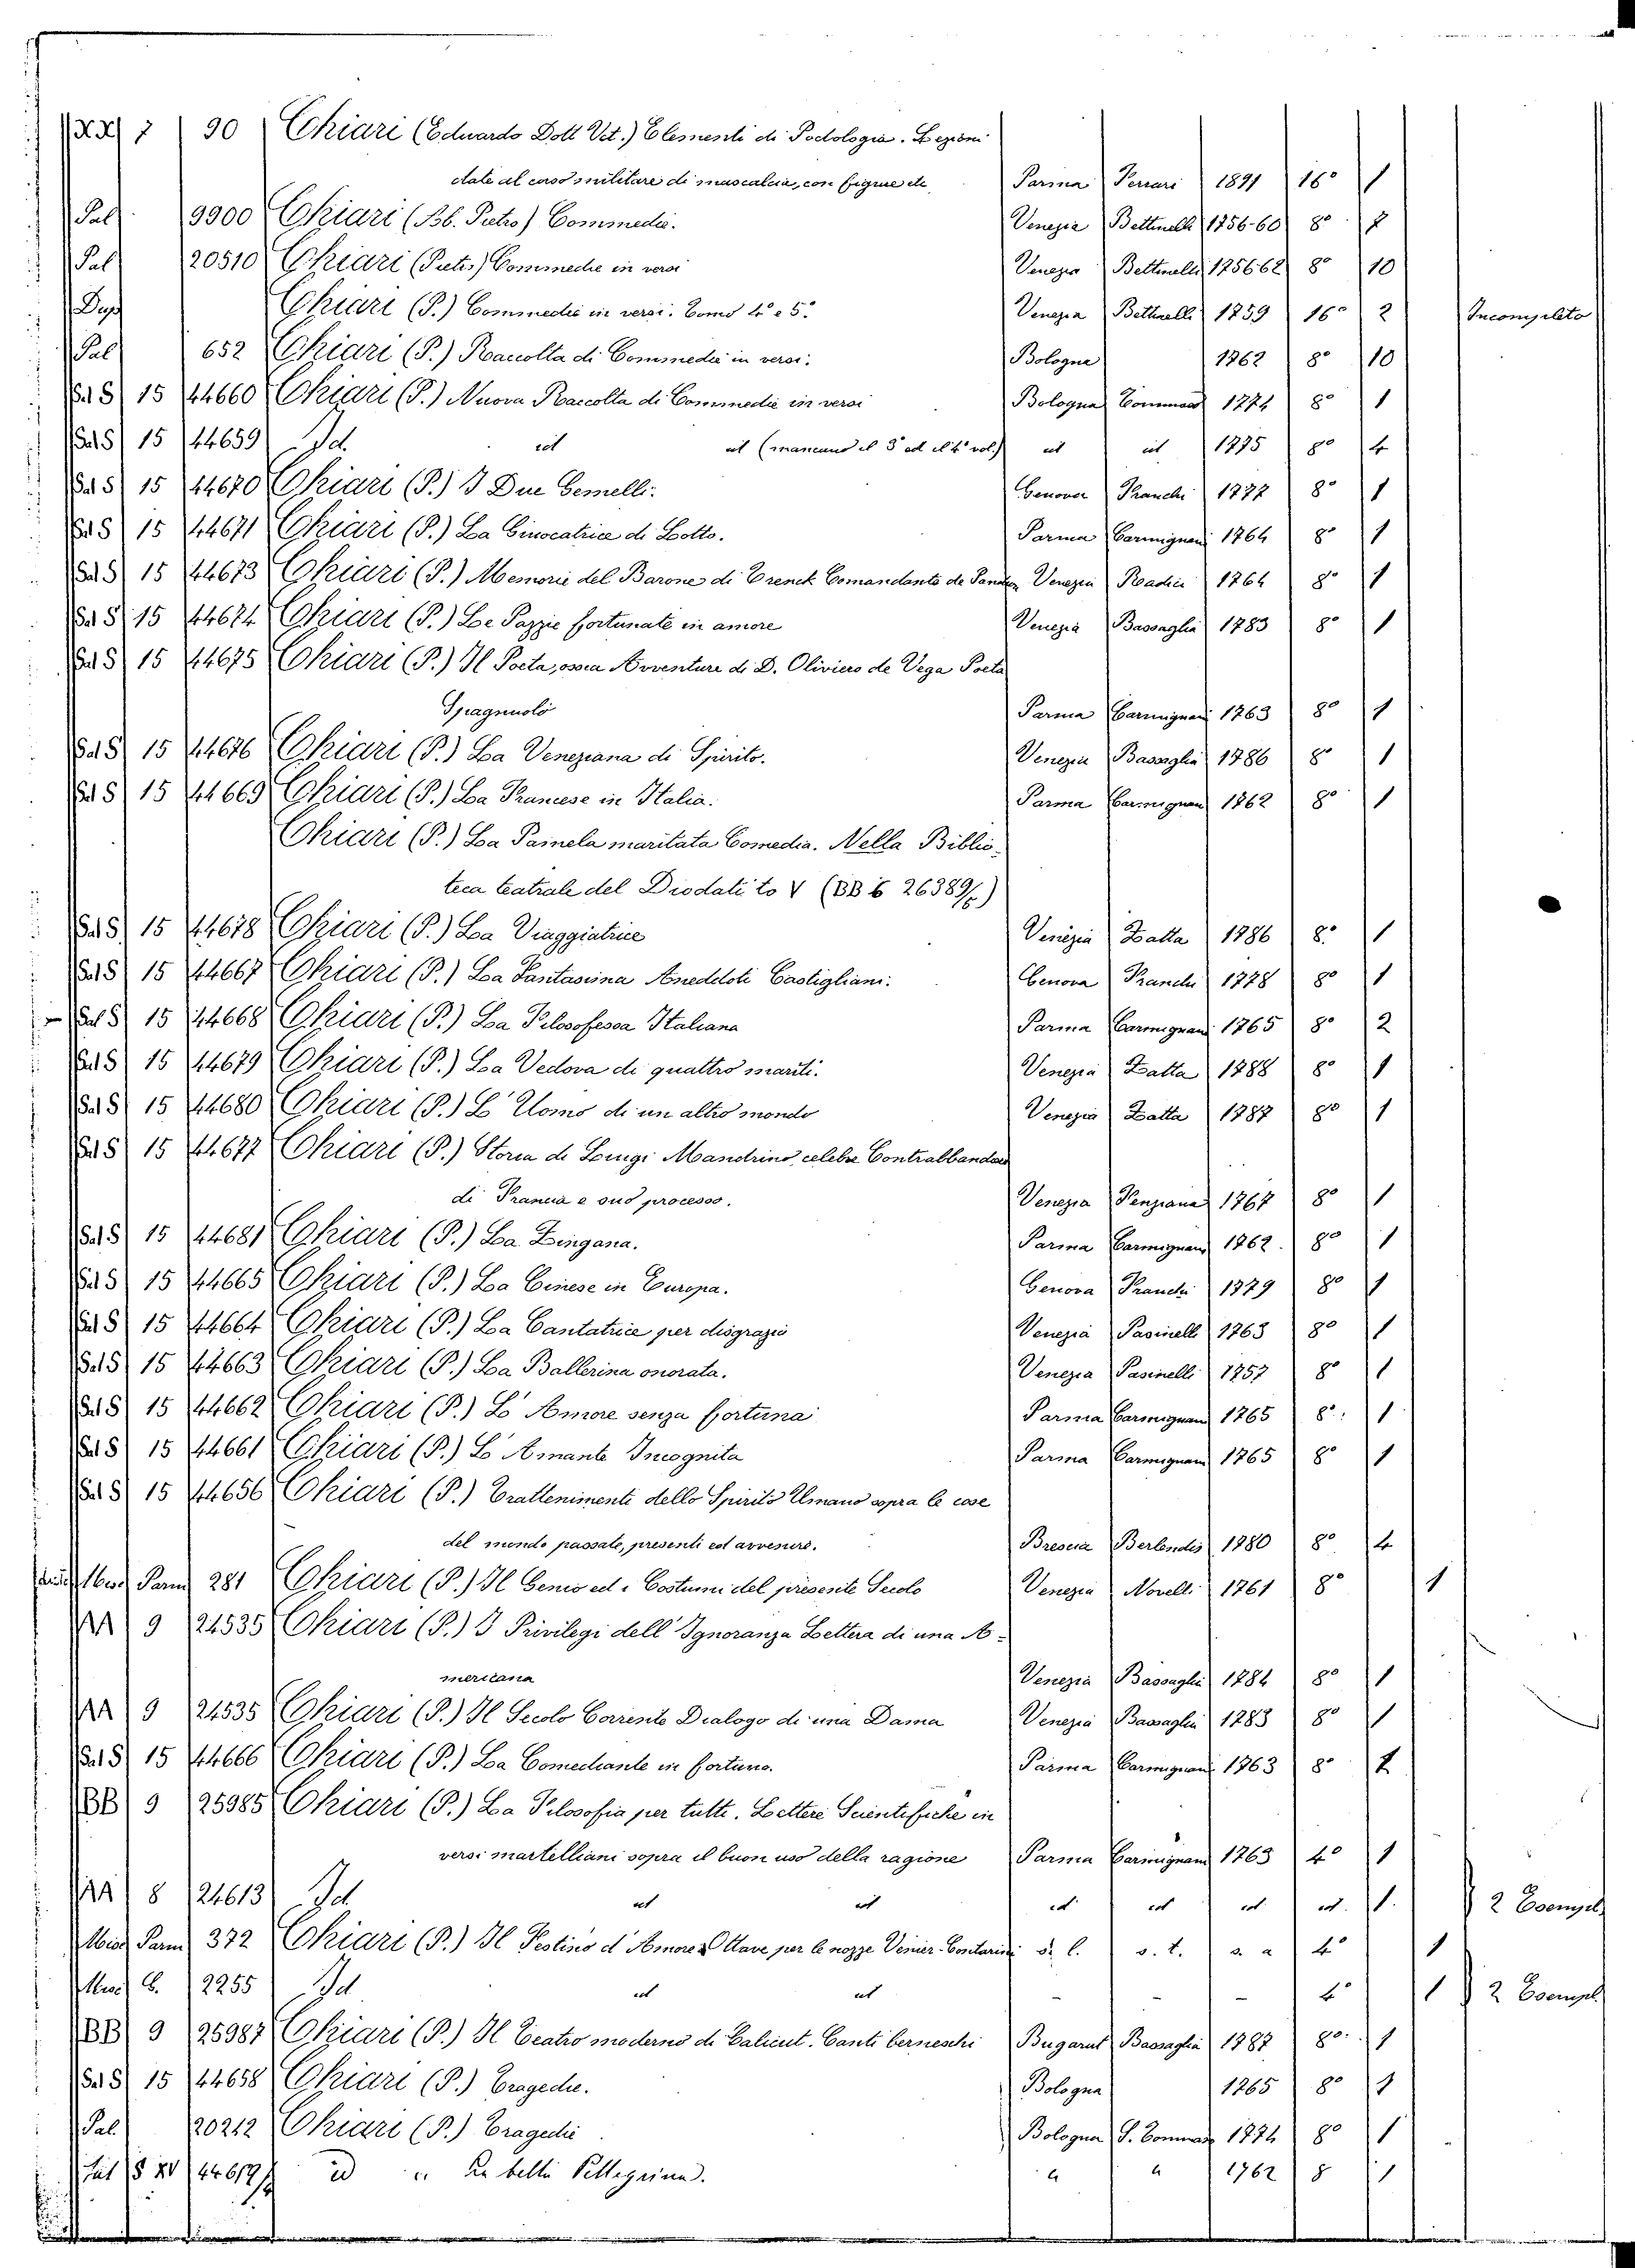 XX 7 90 Chiari (Eduardo Dott Vet.) Elementi di Podologia. Lezioni
date al corso militare di mascalcia, con figure etc. Parma Ferrari 1891 16° 1
Pal 9900 Chiari (Ab. Pietro) Commedie. Venezia Bettinelli 1756-60 8°
Pal 20510 Chiari (Pietro) Commedie in versi Venezia Bettinelli 1756-62 8° 10
Dup Chiari (P.) Commedie in versi. Tomo 4° e 5° Venezia Bettinelli 1759 16° 2 Incompleto
Pal 652 Chiari (P.) Raccolta di Commedie in versi. Bologna 1762 8° 10
Sal S 15 44660 Chiari (P.) Nuova Raccolta di Commedie in versi Bologna Tommaso 1774 8° 1
Sal S 15 44659 Id. id id (mancano il 3° ed il 4° vol.) id id 1775 8° 4
Sal S 15 44670 Chiari (P.) I Due Gemelli. Genova Franchi 1777 8° 1
Sal S 15 44671 Chiari (P.) La Giuocatrice di Lotto. Parma Carmignani 1764 8° 1
Sal S 15 44673 Chiari (P.) Memorie del Barone di Trenck Comandante de Panduri Venezia Radici 1764 8° 1
Sal S 15 44674 Chiari (P.) Le Pazzie fortunate in amore Venezia Bassaglia 1783 8° 1
Sal S 15 44675 Chiari (P.) Il Poeta, ossia Avventure di D. Oliviero de Vega Poeta
Spagnuolo Parma Carmignani 1763 8° 1
Sal S 15 44676 Chiari (P.) La Veneziana di Spirito. Venezia Bassaglia 1786 8° 1
Sal S 15 44669 Chiari (P.) La Francese in Italia. Parma Carmignani 1762 8° 1
Chiari (P.) La Pamela maritata Comedia. Nella Biblio-
teca teatrale del Diodati to V (BB 6 26389/)
Sal S 15 44678 Chiari (P.) La Viaggiatrice Venezia Zatta 1786 8° 1
Sal S 15 44667 Chiari (P.) La Fantasima Aneddoti Castigliani. Genova Franchi 1778 8° 1
Sal S 15 44668 Chiari (P.) La Filosofessa Italiana Parma Carmignani 1765 8° 2
Sal S 15 44679 Chiari (P.) La Vedova di quattro mariti. Venezia Zatta 1788 8° 1
Sal S 15 44680 Chiari (P.) L'Uomo di un altro mondo Venezia Zatta 1787 8° 1
Sal S 15 44677 Chiari (P.) Storia di Luigi Mandrino celebre Contrabbandiere
di Francia e suo processo. Venezia Fenziana 1767 8° 1
Sal S 15 44681 Chiari (P.) La Zingana. Parma Carmignani 1762. 8° 1
Sal S 15 44665 Chiari (P.) La Cinese in Europa. Genova Franchi 1779 8° 1
Sal S 15 44664 Chiari (P.) La Cantatrice per disgrazia Venezia Pasinelli 1763 8° 1
Sal S 15 44663 Chiari (P.) La Ballerina onorata. Venezia Pasinelli 1757 8° 1
Sal S 15 44662 Chiari (P.) L'Amore senza fortuna Parma Carmignani 1765 8° 1
Sal S 15 44661 Chiari (P.) L'Amante Incognita Parma Carmignani 1765 8° 1
Sal S 15 44656 Chiari (P.) Trattenimenti dello Spirito Umano sopra le cose
del mondo passate, presenti ed avvenire. Brescia Berlendis 1780 8° 4
Misc Parm 281 Chiari (P.) Il Genio ed i Costumi del presente Secolo Venezia Novelli 1761 8° 1
AA 9 24535 Chiari (P.) I Privilegi dell'Ignoranza Lettera di una A-
mericana Venezia Bassaglia 1784 8° 1
AA 9 24535 Chiari (P.) Il Secolo Corrente Dialogo di una Dama Venezia Bassaglia 1783 8° 1
Sal S 15 44666 Chiari (P.) La Comediante in fortuna. Parma Carmignani 1763 8°
BB 9 25985 Chiari (P.) La Filosofia per tutti. Lettere Scientifiche in
versi martelliani sopra il buon uso della ragione Parma Carmignani 1763 4° 1
AA 8 24613 Id id id id id id id. 1. 2 Esempl.
Misc Parm 372 Chiari (P.) Il Festino d'Amore Ottave per le nozze Venier-Contarini s. l. s. t. s. a 4° 1
Misc E. 2255 Id id id - - - 4° 1 2 Esempl.
BB 9 25987 Chiari (P.) Il Teatro moderno di Calicut. Canti berneschi Bugarut Bassaglia 1787 8° 1
Sal S 15 44658 Chiari (P.) Tragedie. Bologna 1765 8° 1
Pal. 20212 Chiari (P.) Tragedie Bologna S. Tommaso 1774 8° 1
Sal S XV 44619/ id " La bella Pellegrina. " " 1762 8 1